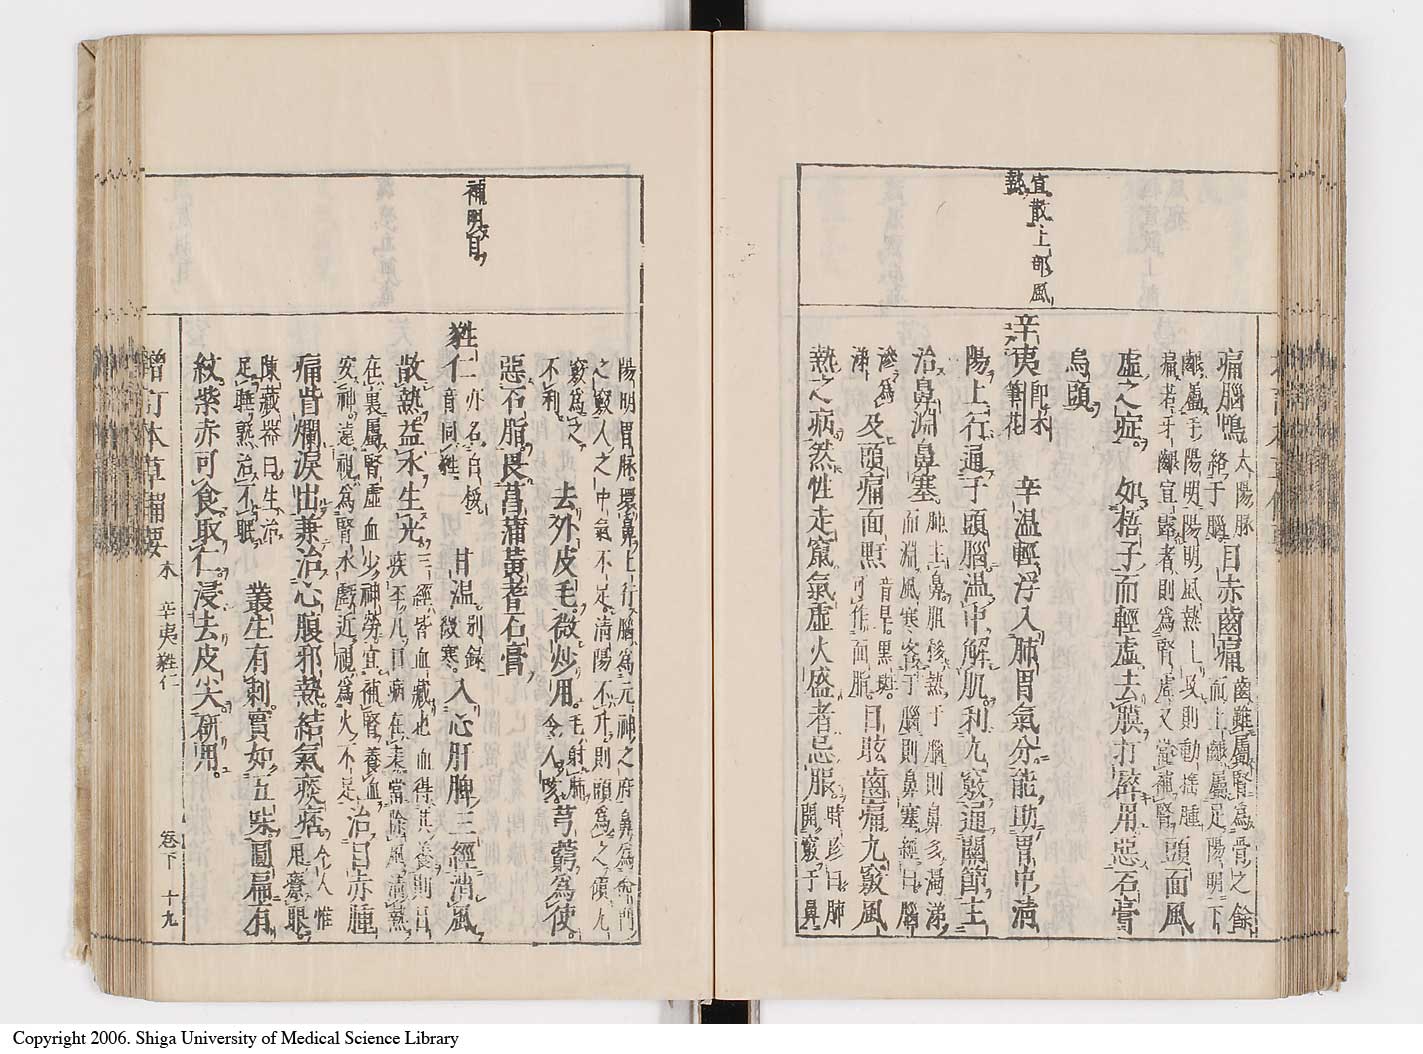 宜散上部風
熱
痛腦鳴太陽脉絡于腦目赤齒痛齒雖屬腎為骨之餘而上齦屬足陽明下
齦屬手陽明陽明風熱上攻則動搖腫
痛若牙齦宣露者則為腎虛又當補腎頭面風
虛之症如梧子而輕虛去膜打碎用惡石膏
烏頭
辛夷即木筆花 辛温輕浮入肺胃氣分能助胃中清
陽上行通于頭腦温中解肌利九竅通關節主
治鼻淵鼻塞肺主鼻膽移熱于腦則鼻多濁涕
而淵風寒客于腦則鼻塞經曰腦
滲為涕及頭痛面䵟音旱黑斑可作面脂目眩齒痛九竅風
熱之病然性走竄氣虛火盛者忌服時珍曰肺開竅于鼻
補明目
陽明胃脉環鼻上行腦為元神之府鼻為命門
之竅人之中氣不足清陽不升則頭為之傾九
竅為之不利去外皮毛微炒用毛射肺令人咳芎藭為使
惡石脂畏菖蒲黃耆石膏
甤仁亦名白桵音同甤 甘温别錄微寒入心肝脾三經消風
散熱益水生光三經皆血藏也血得其養則目
疾平凡目病在表當除風清熱
在裏屬腎虛血少神勞宜補腎養血
安神遠視為腎水虧近視為火不足治目赤腫
痛眥爛淚出兼治心腹邪熱結氣痰痞今人惟用療眼
陳藏器曰生治足睡熟治不眠叢生有刺實如五味圓扁有
紋紫赤可食取仁浸去皮尖研用
增訂本草備要 木 辛夷甤仁 卷下 十九
Copyright 2006. Shiga University of Medical Science Library